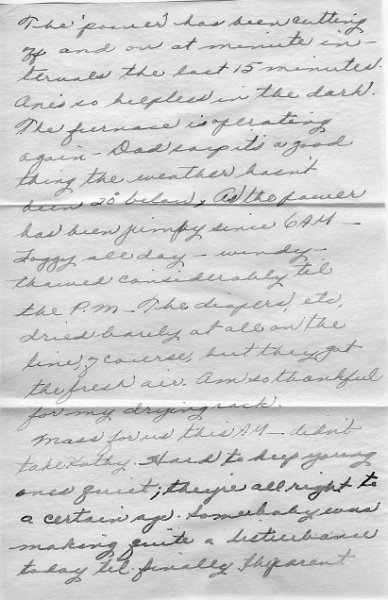 The 'power' has been cutting
off and on at minute in-
tervals the last 15 minutes.
One's so helpless in the dark.
The furnace is operating
again - Dad says it's a good
thing the weather hasn't
been 20° below, As the power
has been jumpy since 6 AM -
Foggy all day - windy -
thawed considerably til
the P.M - The diapers, etc,
dried barely at all on the
line, of course, but they got
the fresh air. Am so thankful
for my drying rack.
Mass for us this AM - didn't
take Kathy. Hard to keep young
ones quiet; they're all right to
a certain age. Somebaby was
making quite a disturbance
today til finally the parent